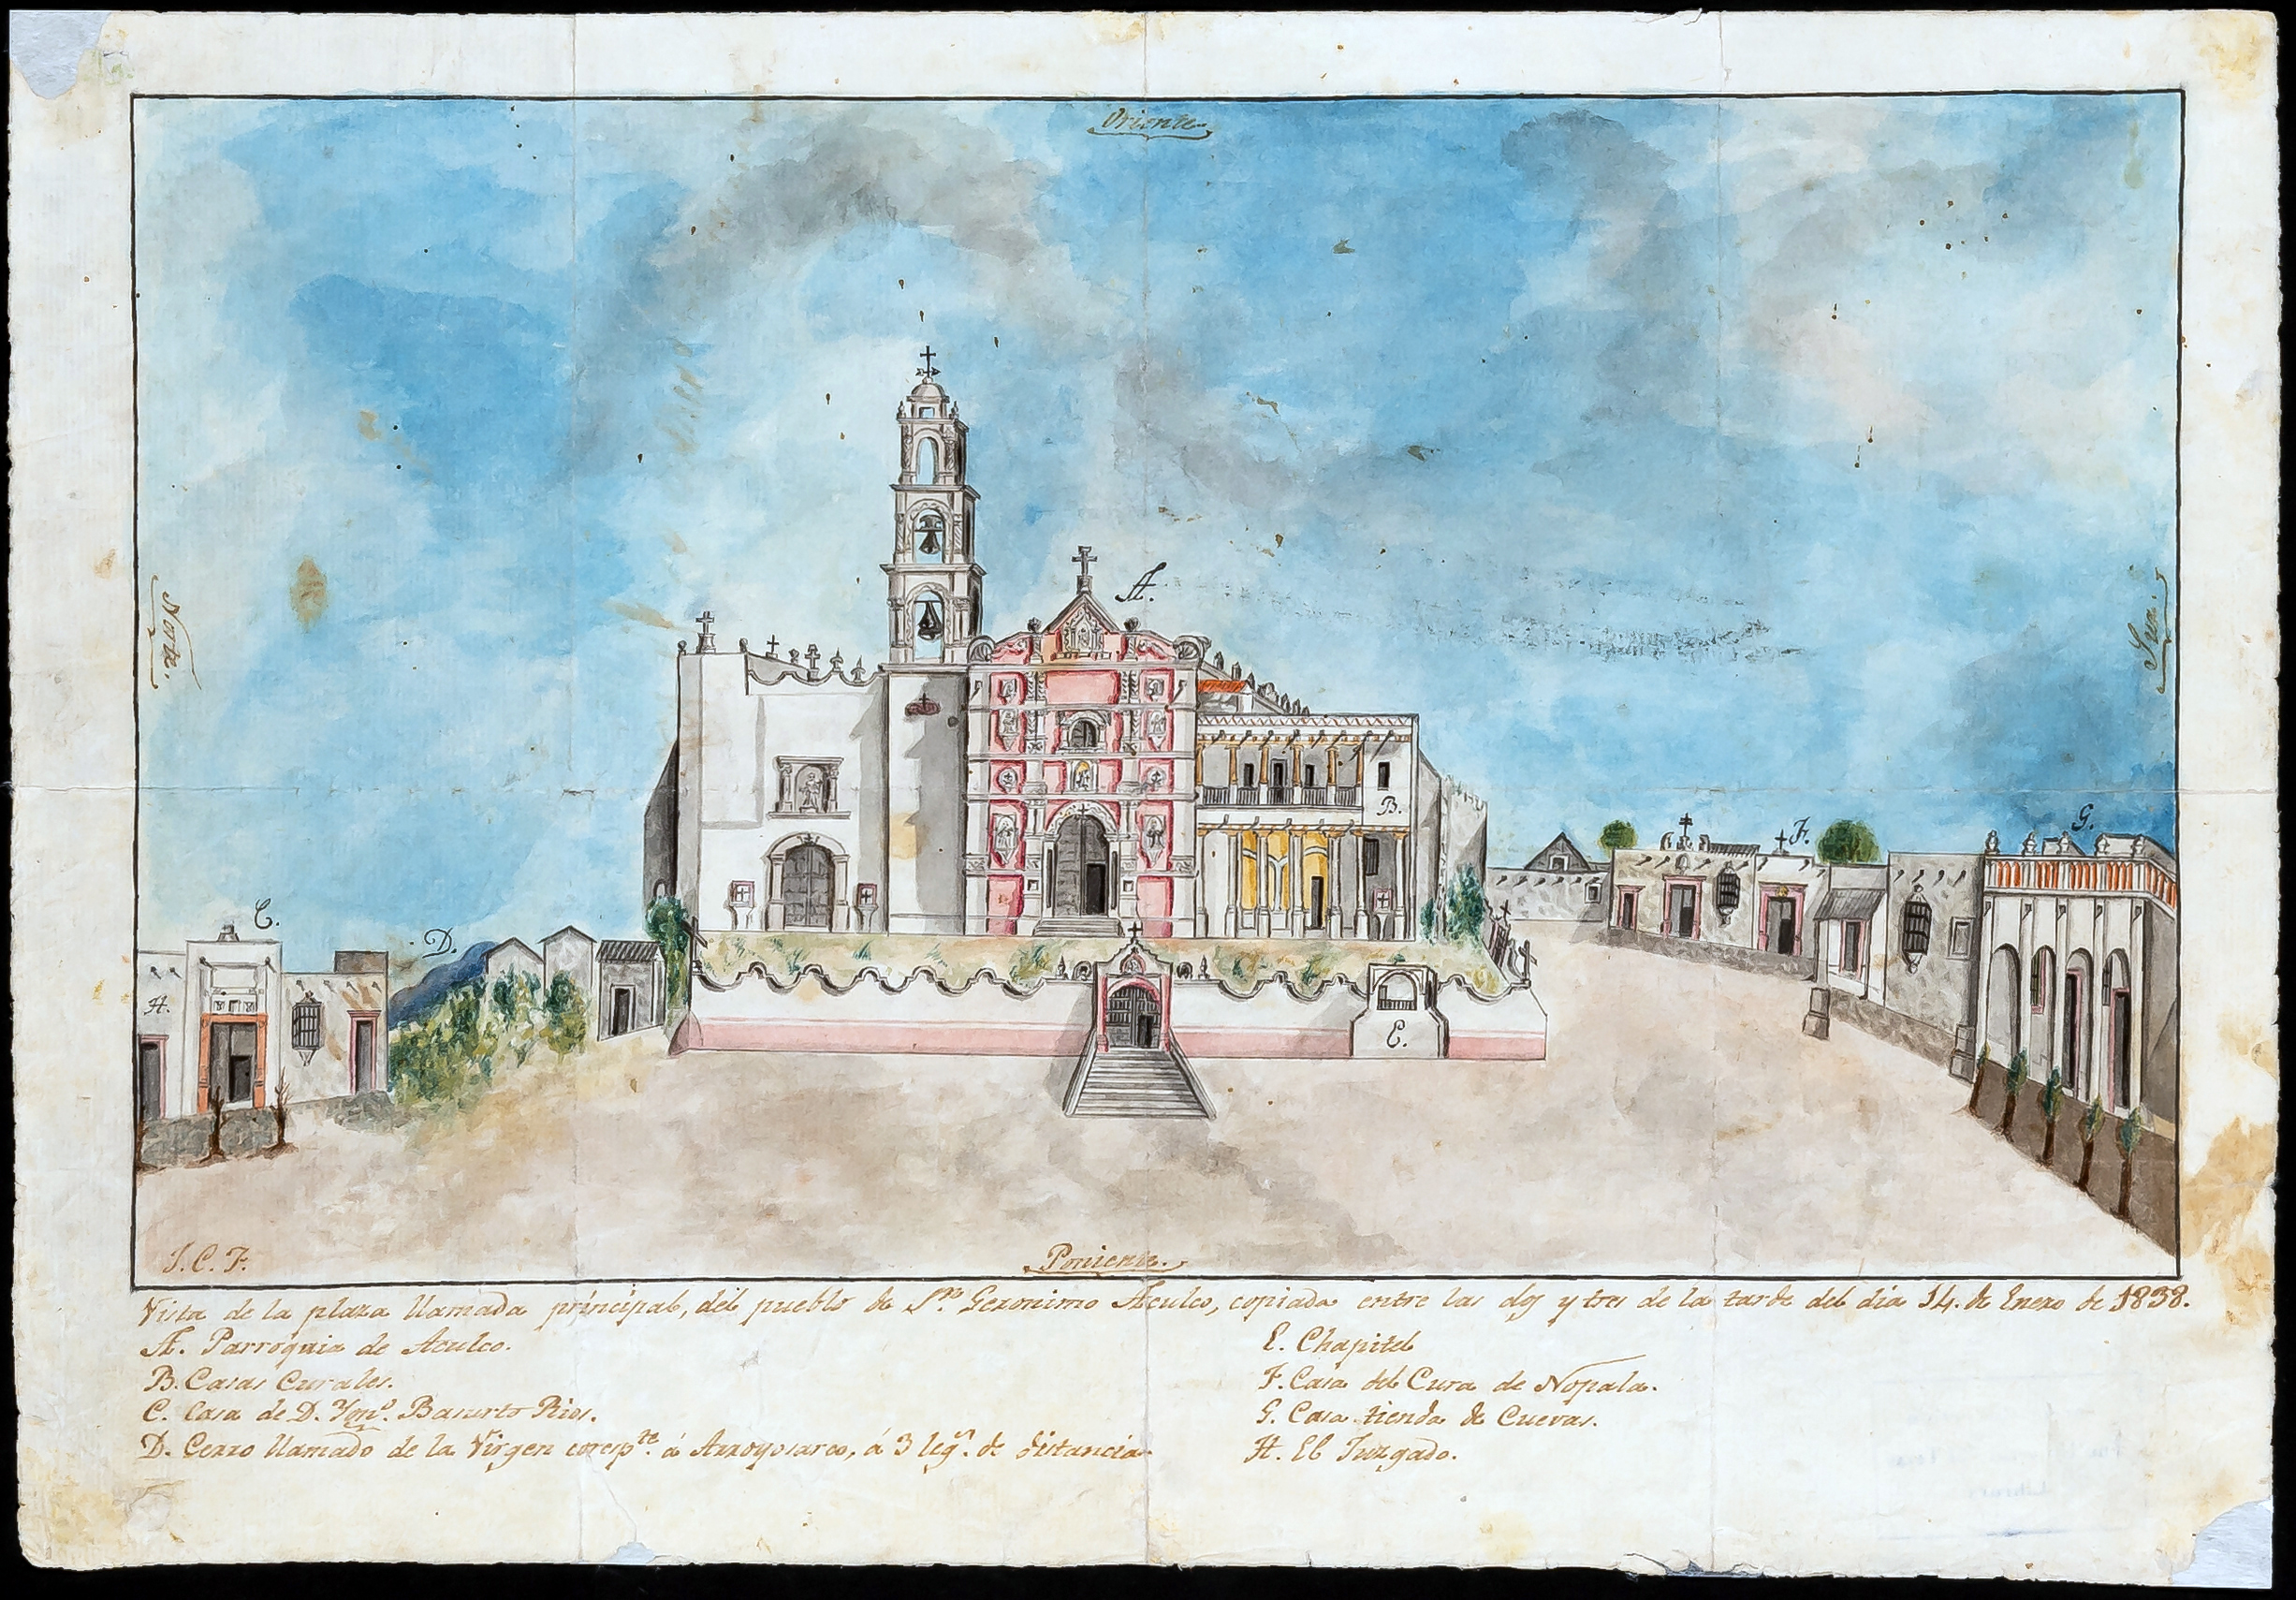 Oriente.
Norte.
Sur.
A.
B.
C.
D.
E.
F.
G.
H.
J. C. F.
Poniente.
Vista de la plaza llamada principal, del pueblo de Sn. Geronimo Aculco, copiada entre las dos y tres de la tarde del dia 14. de Enero de 1838.
A. Parroquia de Aculco.
B. Casas Curales.
C. Casa de D. Basurto Rios.
D. Cerro llamado de la Virgen corespte. á Arroyosarco, á 3 legs. de distancia
E. Chapitel
F. Casa del Cura de Nopala.
G. Casa tienda de Cuevas.
H. El Juzgado.